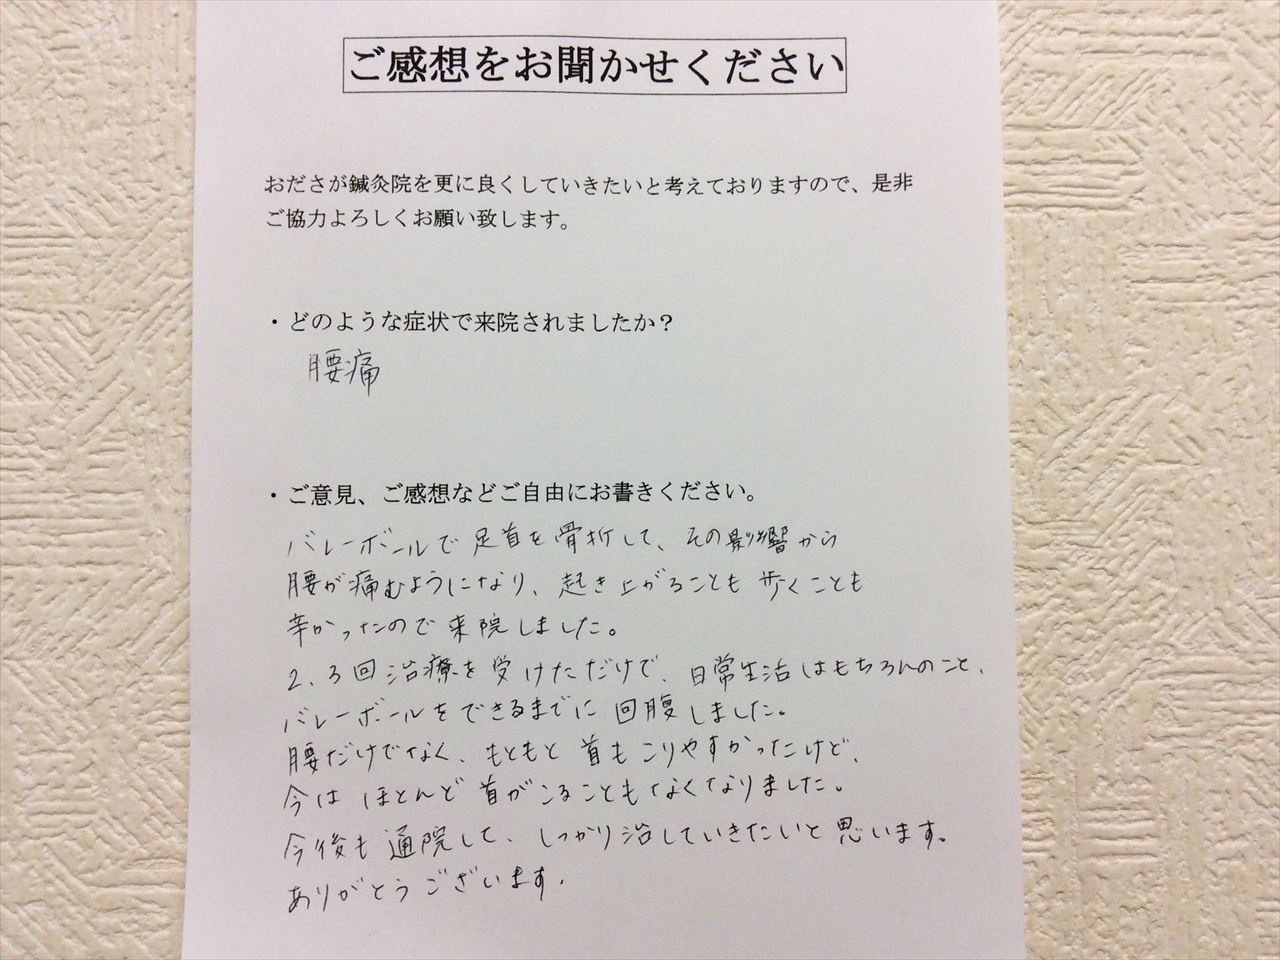 ご感想をお聞かせください
おださが鍼灸院を更に良くしていきたいと考えておりますので、是非
ご協力よろしくお願い致します。
・どのような症状で来院されましたか？
腰痛
・ご意見、ご感想などご自由にお書きください。
バレーボールで足首を骨折して、その影響から
腰が痛むようになり、起き上がることも歩くことも
辛かったので来院しました。
2、3回治療を受けただけで、日常生活はもちろんのこと、
バレーボールをできるまでに回腹しました。
腰だけでなく、もともと首もこりやすかったけど、
今はほとんど首がこることもなくなりました。
今後も通院して、しっかり治していきたいと思います。
ありがとうございます。